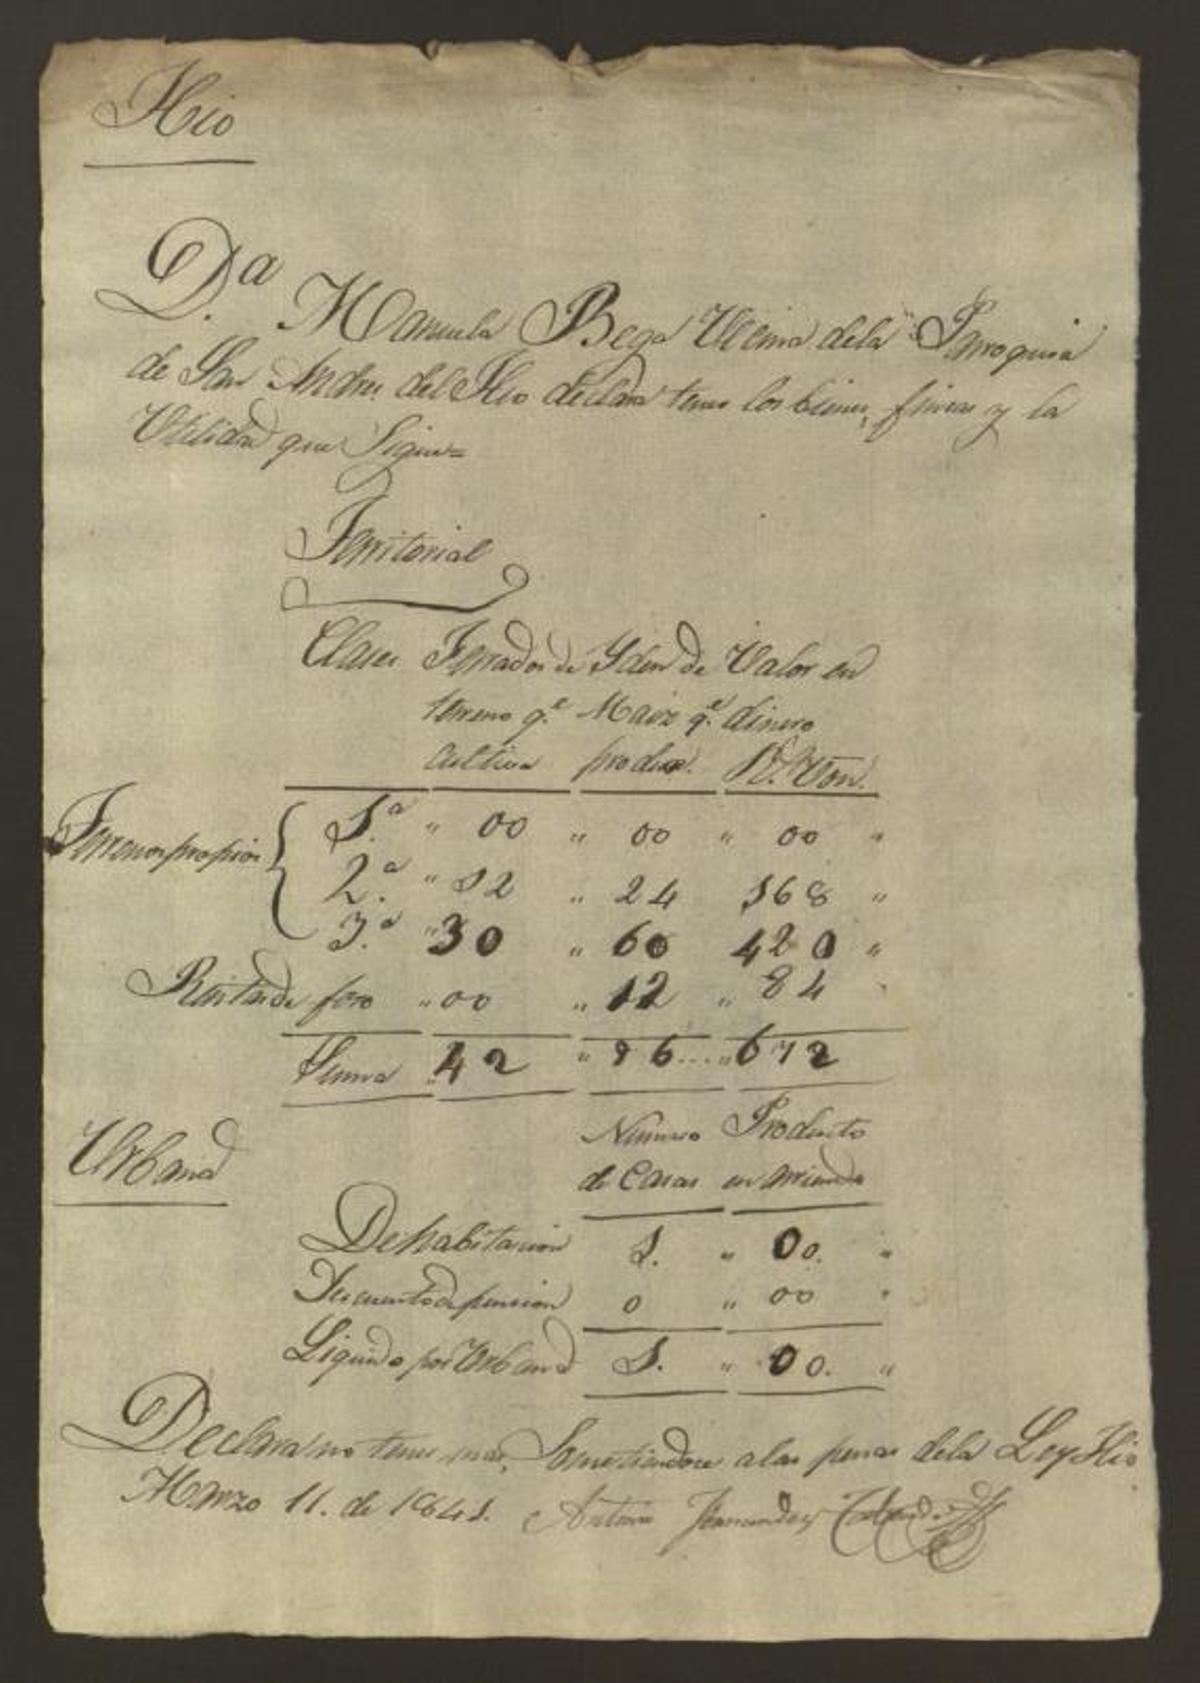 Hio
D.ª Manuela Bega Vecina dela Parroquia
de San Andres del Hio declara tener los bienes, fincas y la
Utilidad que Sigue=
Territorial
Clases Ferrados de Yden de Valor en
terreno q.e Maiz q.e dinero
cultiva produce. R.s Von.
Terrenos propios 1.ª " 00 " 00 " 00 "
2.ª " 12 " 24 168 "
3.ª " 30 " 60 420 "
Renta de foro " 00 " 12 " 84
Suma " 42 " 96 " 672
Urbana
Numero Producto
de Casas en arriendo
De habitacion 1. " 00. "
Descuento de pension 0 " 00 "
Liquido por Urbana 1. " 00. "
Declara no tener mas, Sometiendose a las penas dela Ley Hio
Marzo 11. de 1841. Antonio Fernandez